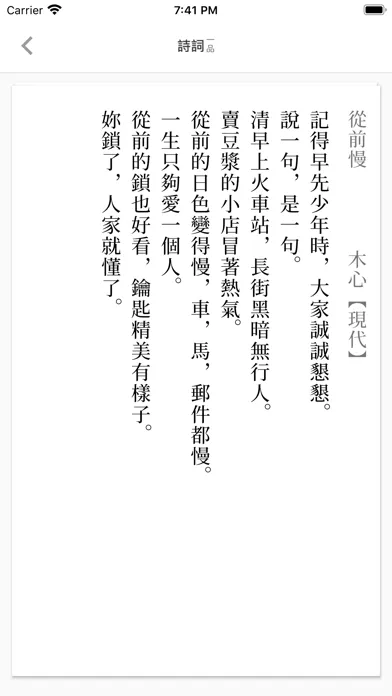 Carrier 7:41 PM
詩詞一品
從前慢 木心【現代】
記得早先少年時，大家誠誠懇懇。
說一句，是一句。
清早上火車站，長街黑暗無行人。
賣豆漿的小店冒著熱氣。
從前的日色變得慢，車，馬，郵件都慢。
一生只夠愛一個人。
從前的鎖也好看，鑰匙精美有樣子。
妳鎖了，人家就懂了。